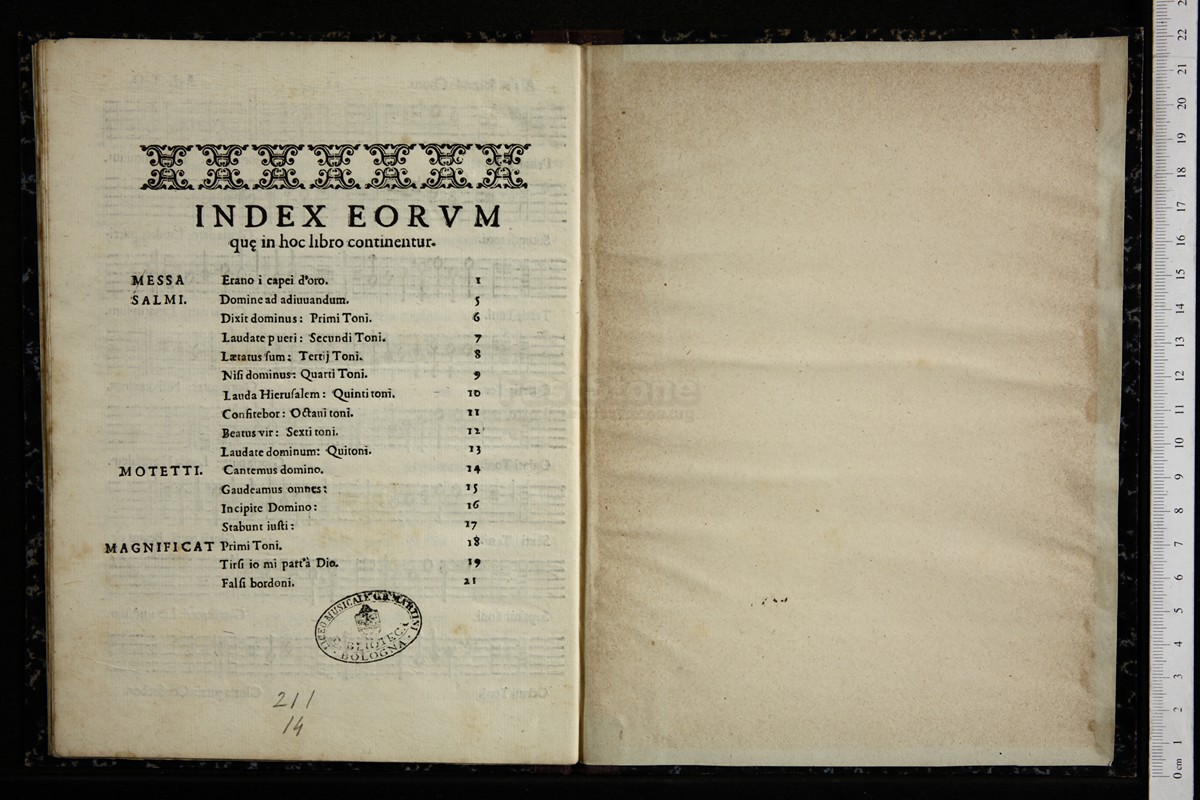 INDEX EORVM
quę in hoc libro continentur.
MESSA Erano i capei d'oro. 1
SALMI. Domine ad adiuuandum. 5
Dixit dominus: Primi Toni. 6
Laudate pueri: Secundi Toni. 7
Lætatus ſum: Tertij Toni. 8
Niſi dominus: Quarti Toni. 9
Lauda Hieruſalem: Quinti toni. 10
Confitebor: Octaui toni. 11
Beatus vir: Sexti toni. 12
Laudate dominum: Quitoni. 13
MOTETTI. Cantemus domino. 14
Gaudeamus omnes: 15
Incipite Domino: 16
Stabunt iuſti: 17
MAGNIFICAT Primi Toni. 18
Tirſi io mi part'à Dio. 19
Falſi bordoni. 21
LICEO MUSICALE G.B. MARTINI
BIBLIOTECA
BOLOGNA
211
14
0 cm 1 2 3 4 5 6 7 8 9 10 11 12 13 14 15 16 17 18 19 20 21 22